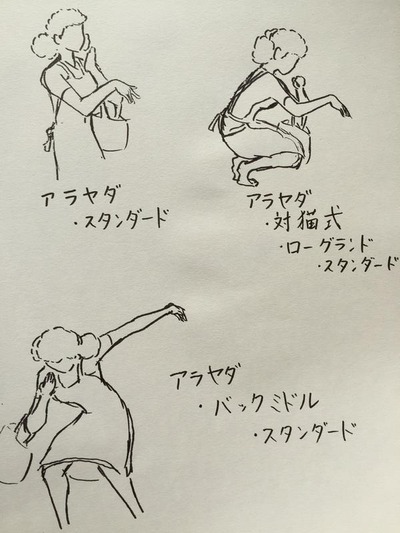 アラヤダ
・スタンダード
アラヤダ
・対猫式
・ローグランド
・スタンダード
アラヤダ
・バックミドル
・スタンダード